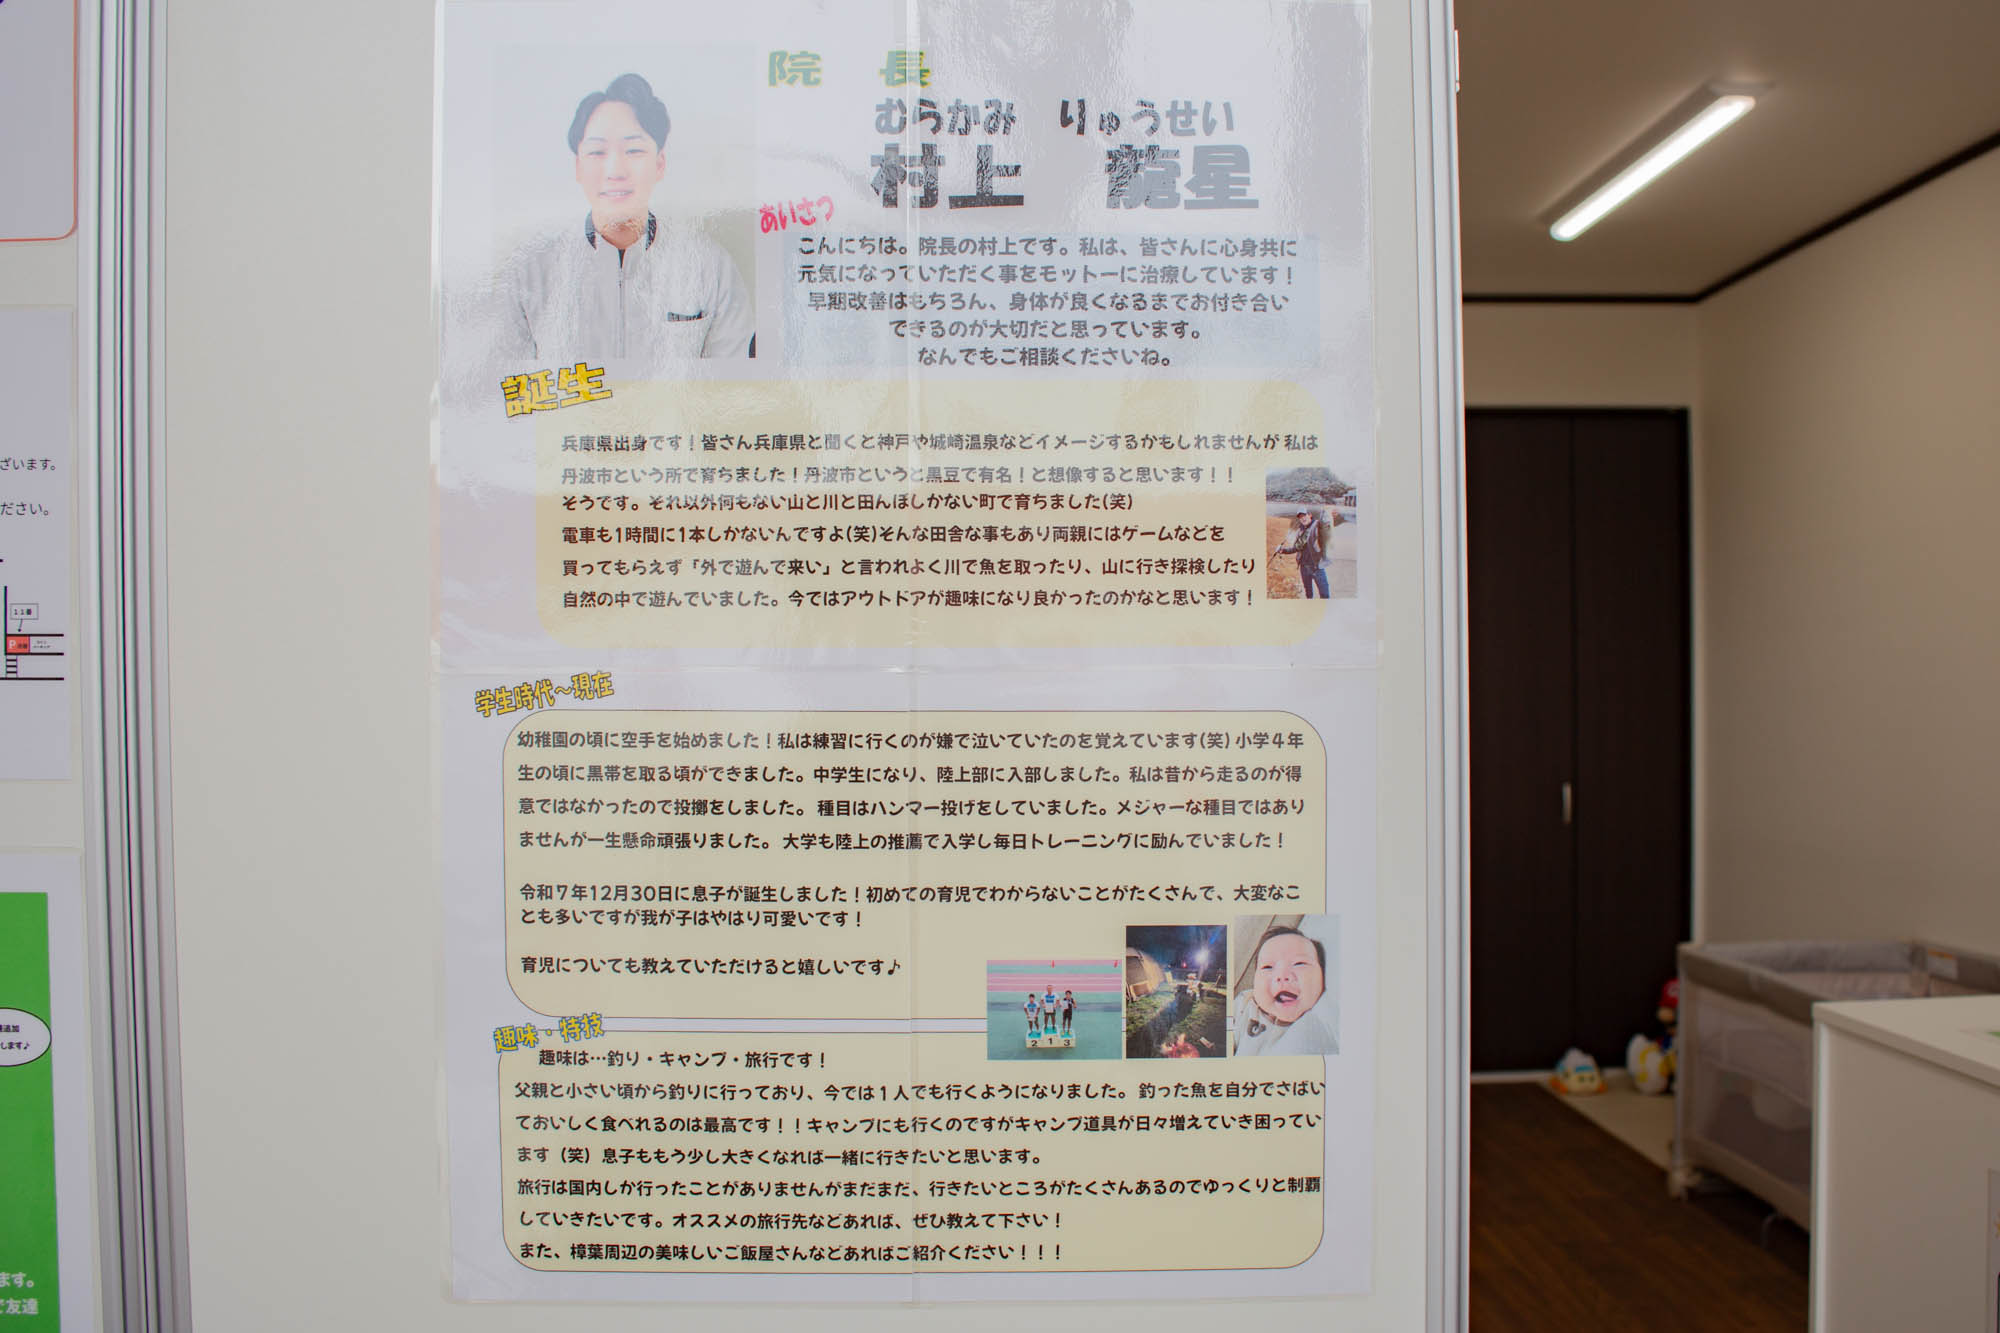 院 長
むらかみ りゅうせい
村上 龍星
あいさつ
こんにちは。院長の村上です。私は、皆さんに心身共に
元気になっていただく事をモットーに治療しています！
早期改善はもちろん、身体が良くなるまでお付き合い
できるのが大切だと思っています。
なんでもご相談くださいね。
誕生
兵庫県出身です！皆さん兵庫県と聞くと神戸や城崎温泉などイメージするかもしれませんが 私は
丹波市という所で育ちました！丹波市というと黒豆で有名！と想像すると思います！！
そうです。それ以外何もない山と川と田んぼしかない町で育ちました(笑)
電車も1時間に1本しかないんですよ(笑)そんな田舎な事もあり両親にはゲームなどを
買ってもらえず「外で遊んで来い」と言われよく川で魚を取ったり、山に行き探検したり
自然の中で遊んでいました。今ではアウトドアが趣味になり良かったのかなと思います！
学生時代～現在
幼稚園の頃に空手を始めました！私は練習に行くのが嫌で泣いていたのを覚えています(笑) 小学４年
生の頃に黒帯を取る頃ができました。中学生になり、陸上部に入部しました。私は昔から走るのが得
意ではなかったので投擲をしました。 種目はハンマー投げをしていました。メジャーな種目ではあり
ませんが一生懸命頑張りました。 大学も陸上の推薦で入学し毎日トレーニングに励んでいました！
令和７年12月30日に息子が誕生しました！初めての育児でわからないことがたくさんで、大変なこ
とも多いですが我が子はやはり可愛いです！
育児についても教えていただけると嬉しいです♪
2 1 3
趣味・特技
趣味は…釣り・キャンプ・旅行です！
父親と小さい頃から釣りに行っており、今では１人でも行くようになりました。 釣った魚を自分でさばい
ておいしく食べれるのは最高です！！キャンプにも行くのですがキャンプ道具が日々増えていき困ってい
ます（笑）息子ももう少し大きくなれば一緒に行きたいと思います。
旅行は国内しか行ったことがありませんがまだまだ、行きたいところがたくさんあるのでゆっくりと制覇
していきたいです。オススメの旅行先などあれば、ぜひ教えて下さい！
また、樟葉周辺の美味しいご飯屋さんなどあればご紹介ください！！！
ざいます。
ださい。
11番
P
追加
します♪
ます。
で友達